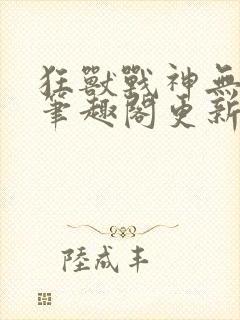 狂獸戰神無
筆趣閣更新
陸成丰